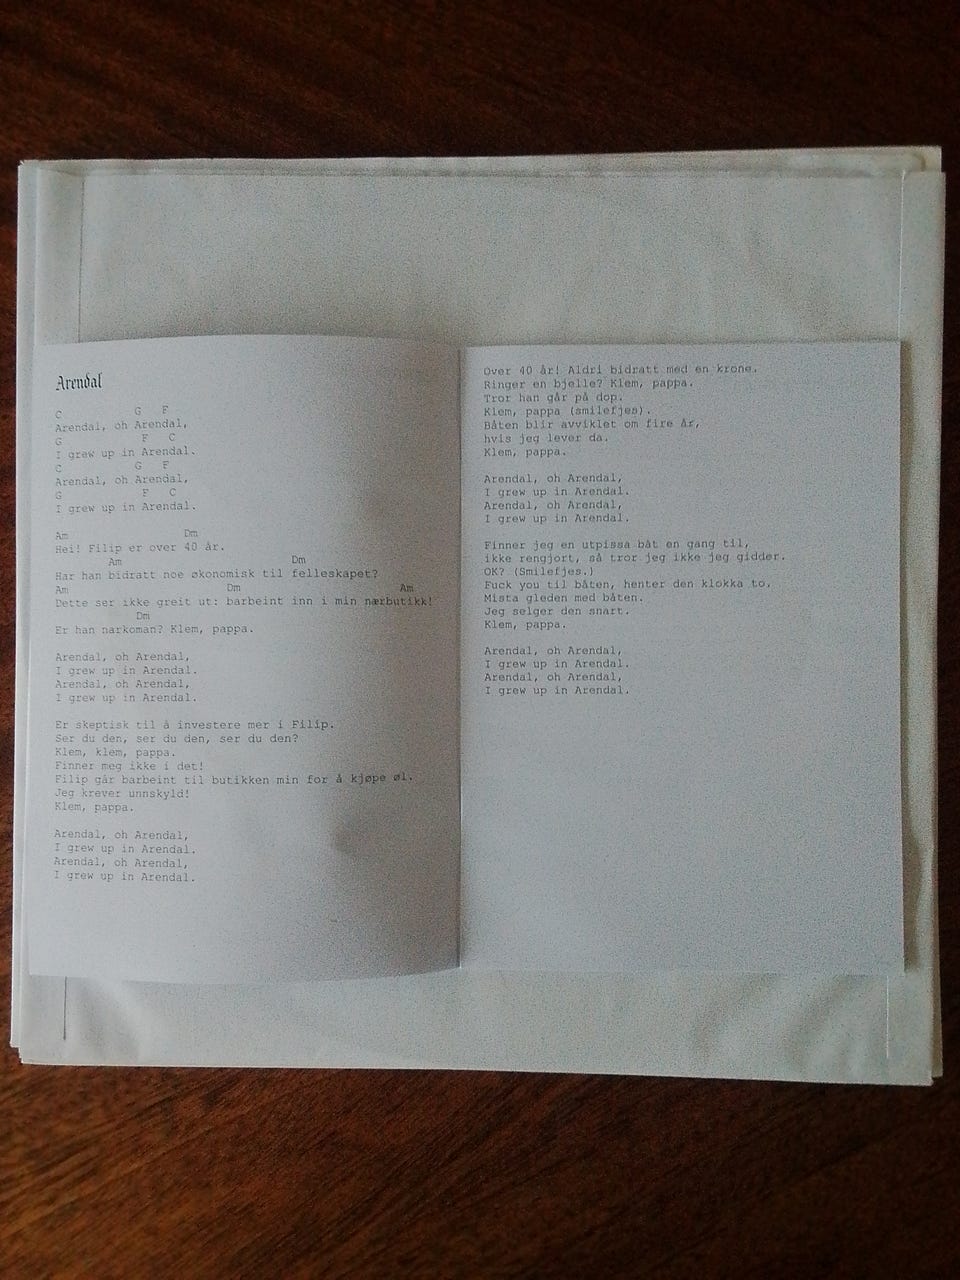 Arendal
C G F
Arendal, oh Arendal,
G F C
I grew up in Arendal.
C G F
Arendal, oh Arendal,
G F C
I grew up in Arendal.
Am Dm
Hei! Filip er over 40 år.
Am Dm
Har han bidratt noe økonomisk til felleskapet?
Am Dm Am
Dette ser ikke greit ut: barbeint inn i min nærbutikk!
Dm
Er han narkoman? Klem, pappa.
Arendal, oh Arendal,
I grew up in Arendal.
Arendal, oh Arendal,
I grew up in Arendal.
Er skeptisk til å investere mer i Filip.
Ser du den, ser du den, ser du den?
Klem, klem, pappa.
Finner meg ikke i det!
Filip går barbeint til butikken min for å kjøpe øl.
Jeg krever unnskyld!
Klem, pappa.
Arendal, oh Arendal,
I grew up in Arendal.
Arendal, oh Arendal,
I grew up in Arendal.
Over 40 år! Aldri bidratt med en krone.
Ringer en bjelle? Klem, pappa.
Tror han går på dop.
Klem, pappa (smilefjes).
Båten blir avviklet om fire år,
hvis jeg lever da.
Klem, pappa.
Arendal, oh Arendal,
I grew up in Arendal.
Arendal, oh Arendal,
I grew up in Arendal.
Finner jeg en utpissa båt en gang til,
ikke rengjort, så tror jeg ikke jeg gidder.
OK? (Smilefjes.)
Fuck you til båten, henter den klokka to.
Mista gleden med båten.
Jeg selger den snart.
Klem, pappa.
Arendal, oh Arendal,
I grew up in Arendal.
Arendal, oh Arendal,
I grew up in Arendal.